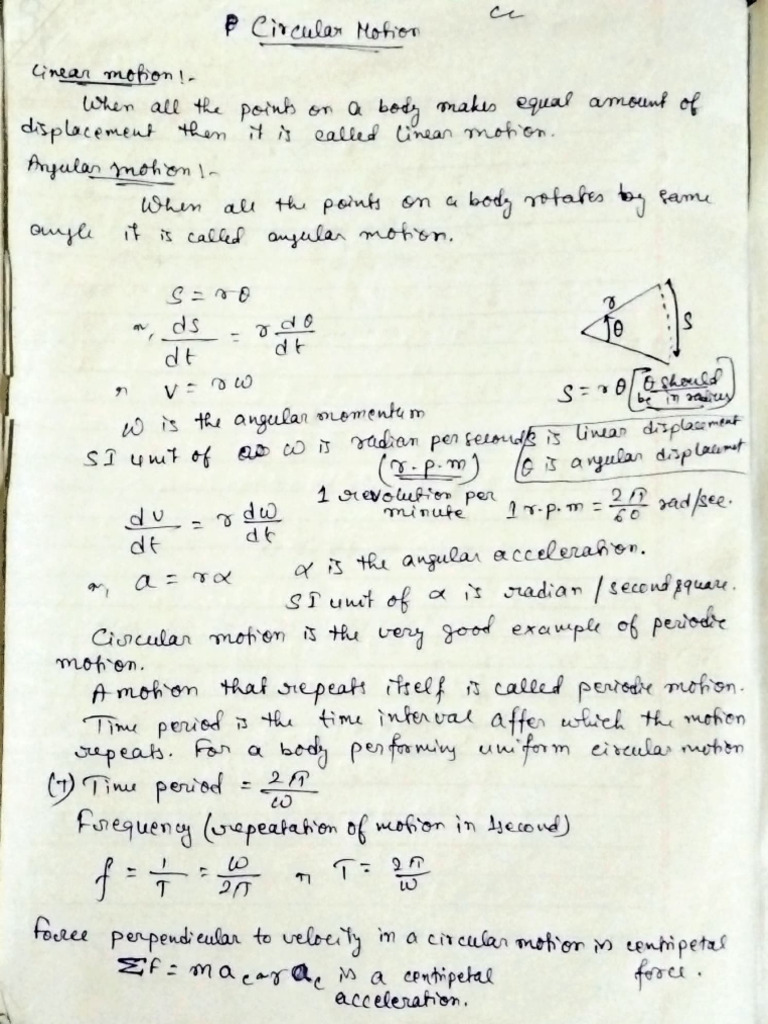 cc
Circular Motion
Linear motion :-
When all the points on a body makes equal amount of
displacement then it is called linear motion.
Angular motion :-
When all the points on a body rotates by same
angle it is called angular motion.
S = rθ
or, ds/dt = r dθ/dt
or v = rω
r
θ
S
S = rθ θ should
be in radius
ω is the angular momentum
SI unit of ω is radian per second
(r.p.m)
S is linear displacement
θ is angular displacement
1 revolution per
minute
1 r.p.m = 2π/60 rad/sec.
dv/dt = r dω/dt
or, a = rα
α is the angular acceleration.
SI unit of α is radian / second square.
Circular motion is the very good example of periodic
motion.
A motion that repeats itself is called periodic motion.
Time period is the time interval after which the motion
repeats. For a body performing uniform circular motion
(T) Time period = 2π/ω
Frequency (repeatation of motion in 1 second)
f = 1/T = ω/2π or T = 2π/ω
Force perpendicular to velocity in a circular motion is centripetal
force.
ΣF = mac or ac is a centripetal
acceleration.